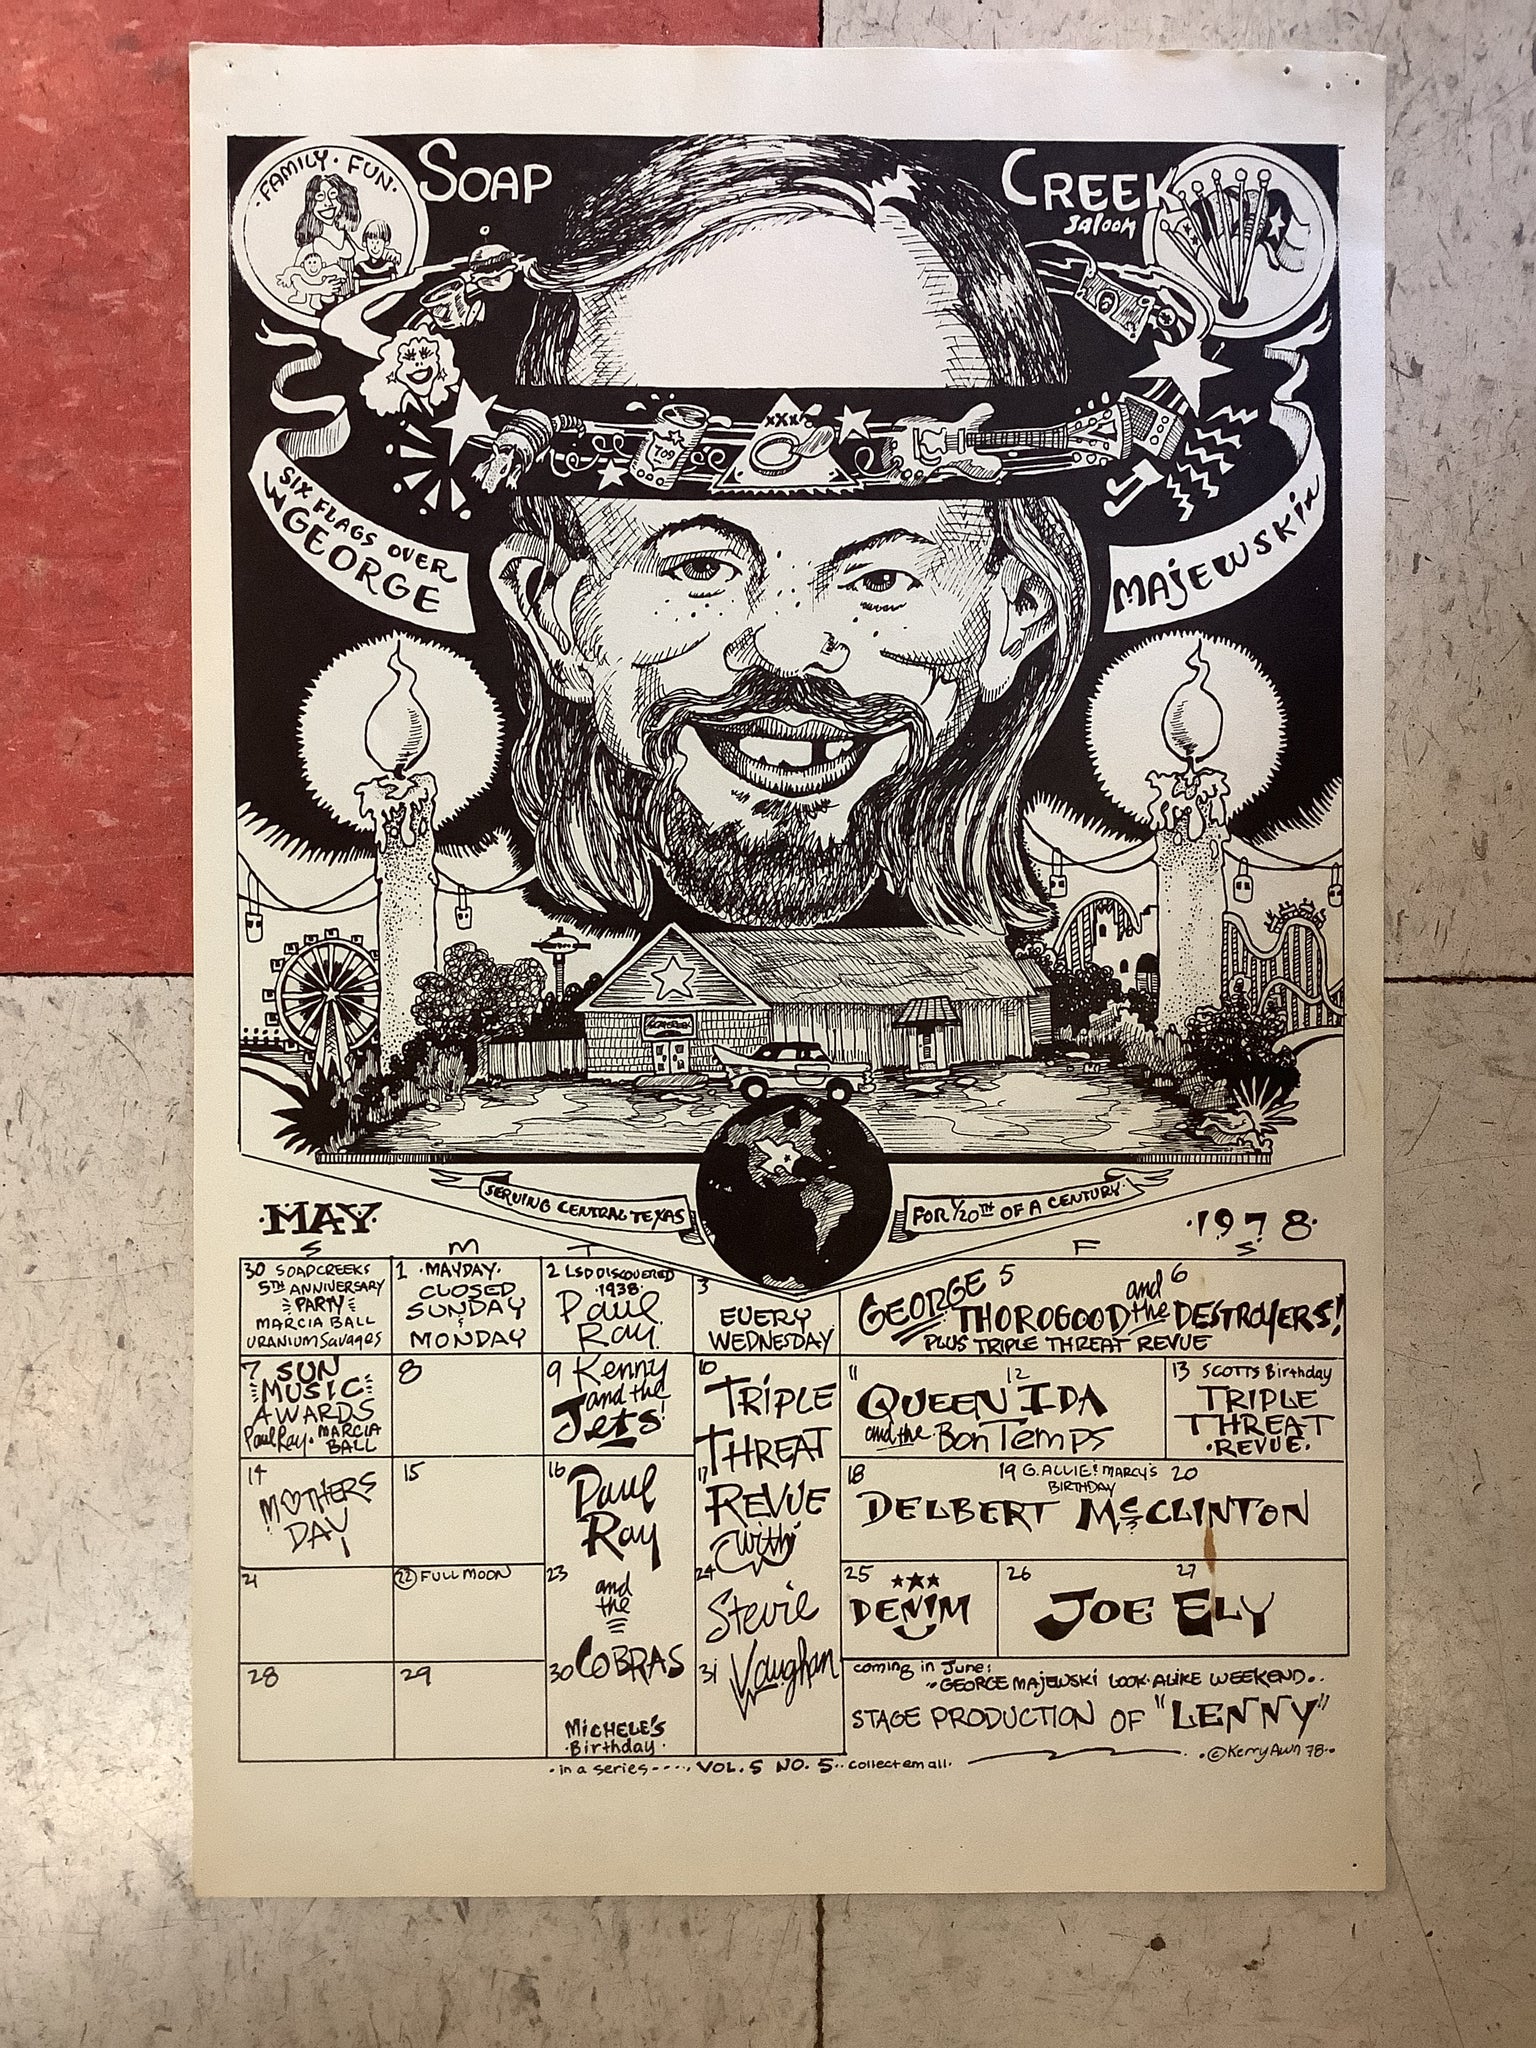 FAMILY · FUN ·
SOAP CREEK
saloon
xXx
709
SIX FLAGS OVER
GEORGE
MAJEWSKi
SERVING CENTRAL TEXAS
FOR 1/20TH OF A CENTURY
·MAY· ·1978·
S M T F S
30 SOAPCREEKS
5TH ANNIVERSARY
PARTY
MARCIA BALL
URANIUM Savages
1 ·MAYDAY·
CLOSED
SUNDAY
&
MONDAY
2 LSD DISCOVERED
·1938·
Paul
Ray
3
EVERY
WEDNESDAY
5 6
GEORGE THOROGOOD and the DESTROYERS!
PLUS TRIPLE THREAT REVUE
7 SUN
MUSIC
AWARDS
Paul Ray · MARCIA
BALL
8
9 Kenny
and the
Jets!
10
TRIPLE
THREAT
17
REVUE
with
24
Stevie
31 Vaughan
11 12
QUEEN IDA
and the Bon Temps
13 SCOTTS Birthday
TRIPLE
THREAT
·REVUE·
14
MOTHERS
DAY
15
16
Paul
Ray
23
and
the
30 COBRAS
MiCHELE'S
·Birthday·
18 19 G. ALLIE & MARCY'S 20
BIRTHDAY
DELBERT McCLINTON
21
22 FULL MOON
25
DENIM
26 27
JOE ELY
28
29
coming in June:
"GEORGE MAJEWSKI LOOK·ALIKE WEEKEND..
STAGE PRODUCTION OF "LENNY"
·in a series---- VOL.5 NO.5·· collect em all·
·©Kerry Awn 78··